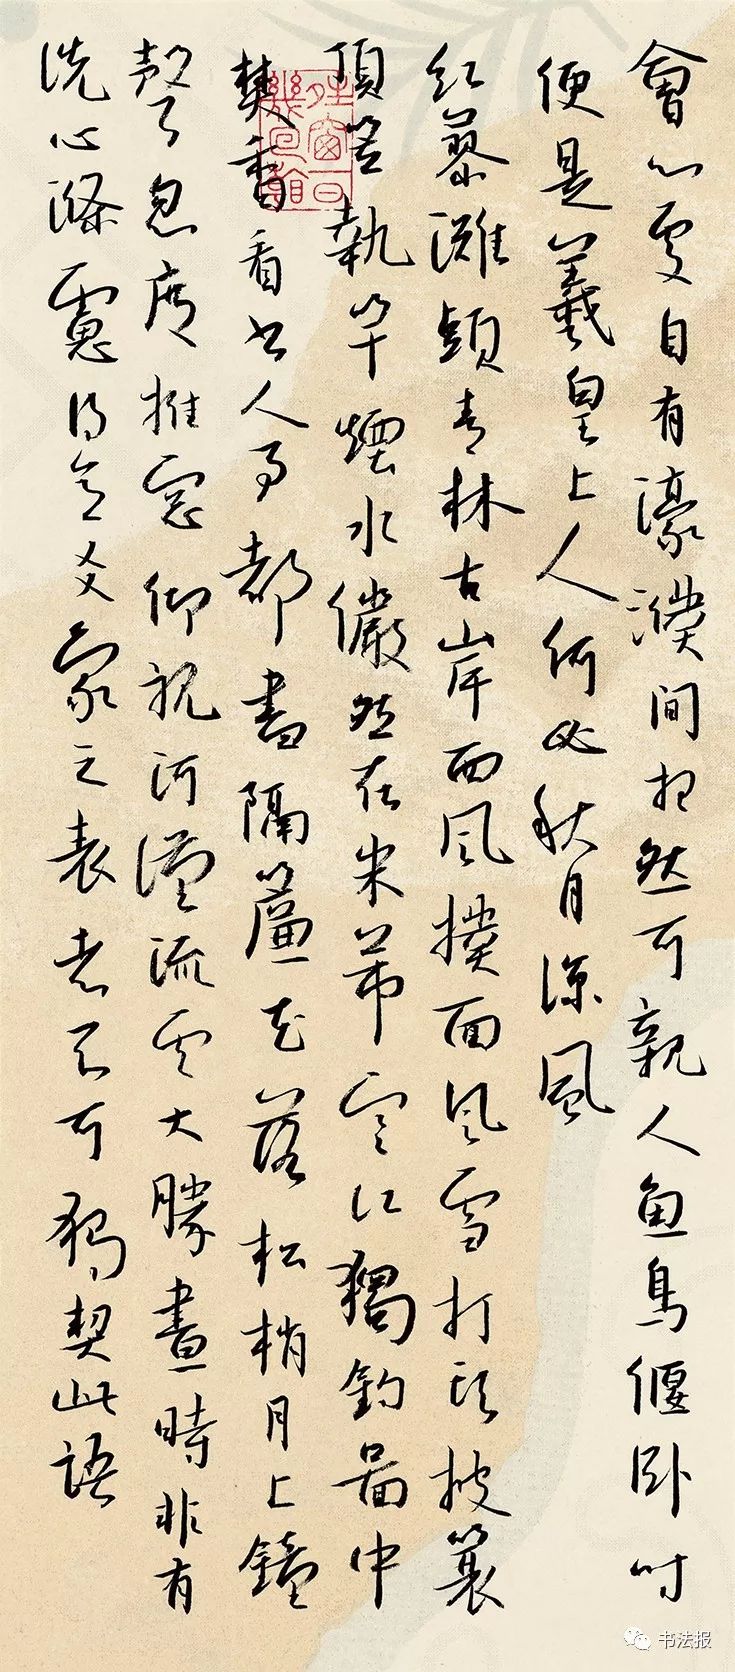 會心處自有濠濮間想然可親人魚鳥偃臥時
便是羲皇上人何必秋月涼風
紅蓼灘頭青林古岸西風撲面風雪打頭披蓑
頂笠執竿煙水儼然在米芾寒江獨釣圖中
焚香看書人事都盡隔簾花落松梢月上鐘
聲忽度推窗仰視河漢流雲大勝晝時非有
洗心滌慮得意爻象之表者不可獨契此語
书法报